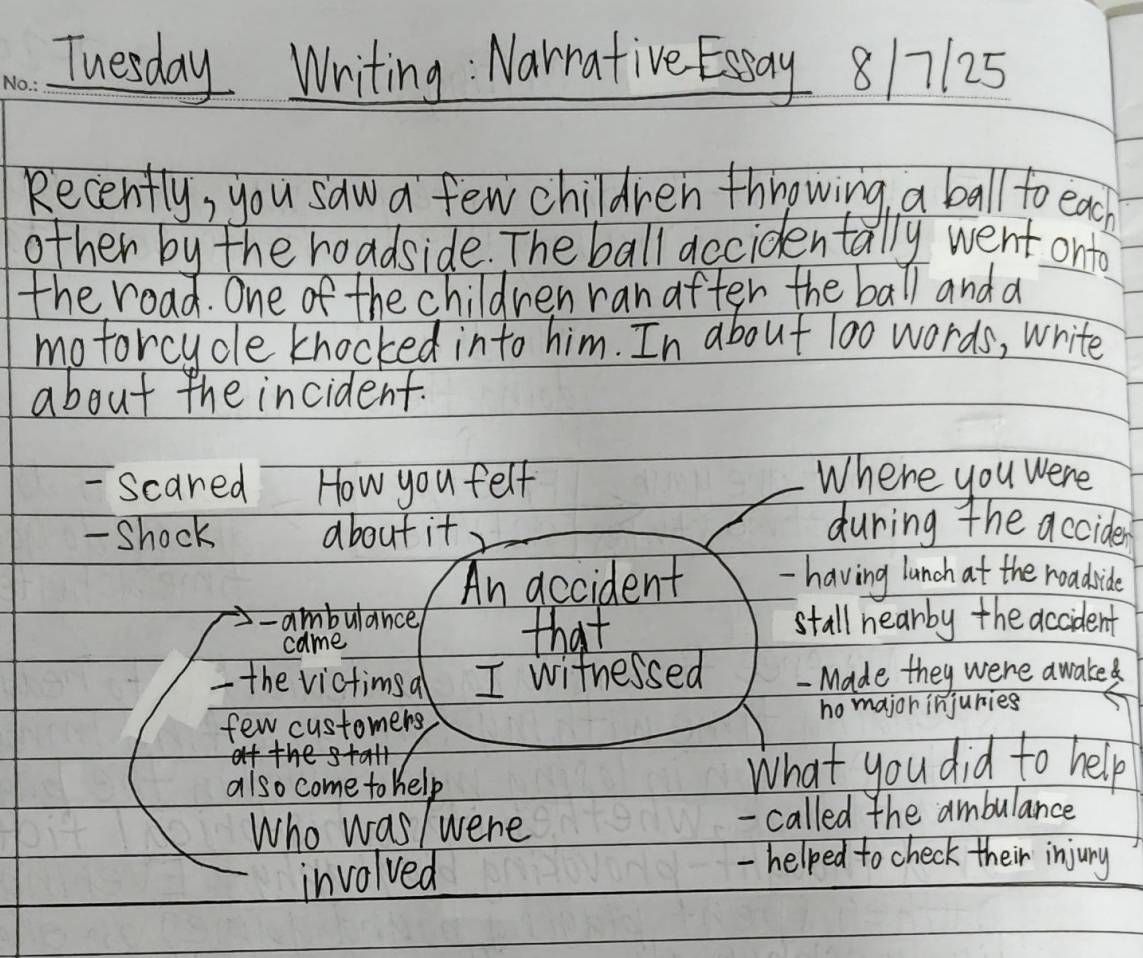 No.: Tuesday Writing: Narrative Essay 8/7/25
Recently, you saw a few children throwing a ball to each
other by the roadside. The ball accidentally went onto
the road. One of the children ran after the ball and a
motorcycle knocked into him. In about 100 words, write
about the incident.
- Scared
- Shock
How you felt
about it
Where you were
during the acciden
- having lunch at the roadside
stall nearby the accident
An accident
that
I witnessed
- ambulance
came
- the victims a
few customers
at the stall
also come to help
Who was/were
involved
- Made they were awake &
no major injuries
What you did to help
- called the ambulance
- helped to check their injury